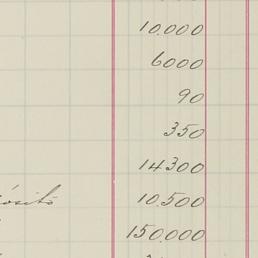 10.000
6000
90
350
14300
10.500
150.000